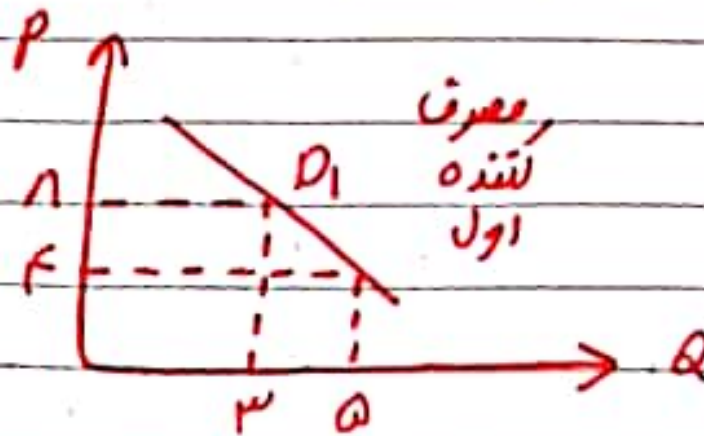 P
مصرف
کننده
اول
D₁
۸
۴
۳ ۵
Q